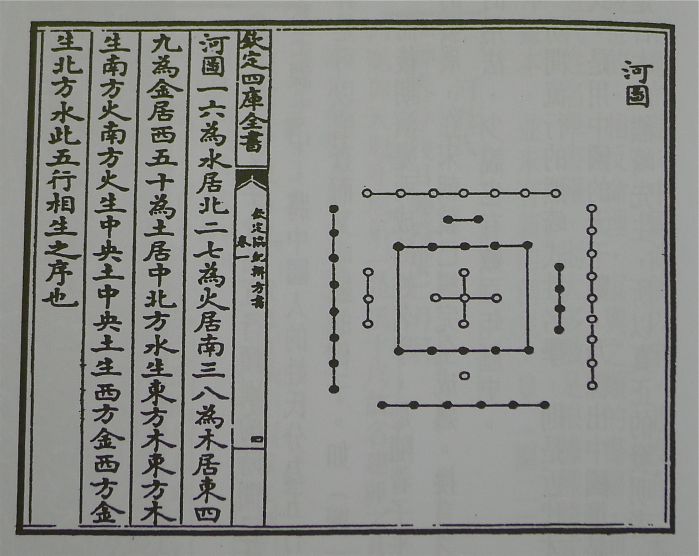 河圖
欽定四庫全書
欽定協紀辨方書
卷一
四
河圖一六為水居北二七為火居南三八為木居東四
九為金居西五十為土居中北方水生東方木東方木
生南方火南方火生中央土中央土生西方金西方金
生北方水此五行相生之序也